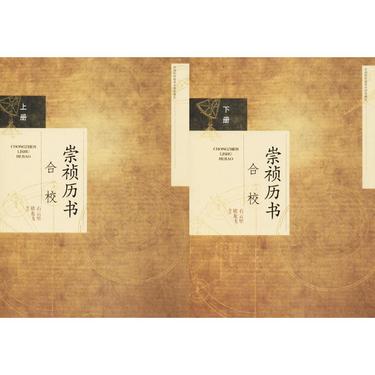 上册
CHONGZHEN
LISHU
HEJIAO
崇祯历书
合校
下册
CHONGZHEN
LISHU
HEJIAO
崇祯历书
合校